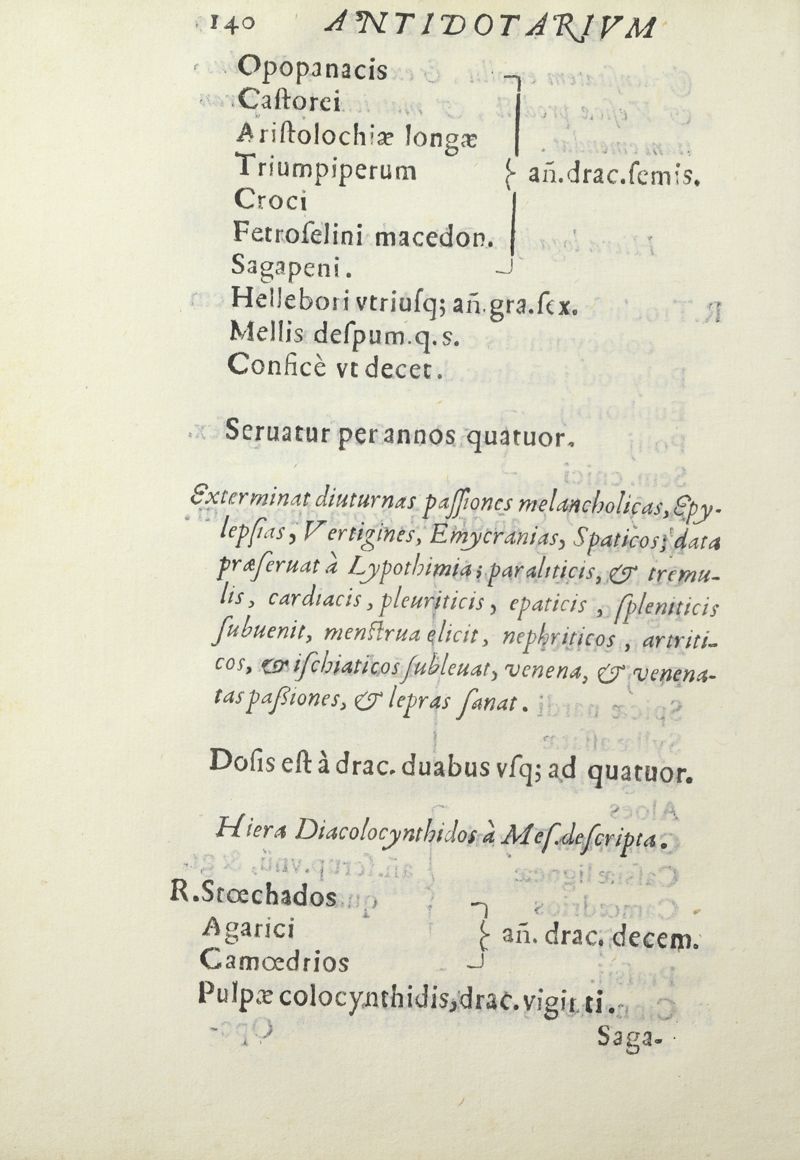 140 ANTIDOTARIVM
Opopanacis
Caſtorei
Ariſtolochiæ longæ
Triumpiperum } añ.drac.ſemis.
Croci
Fetroſelini macedon.
Sagapeni.
Hellebori vtriuſq; añ.gra.ſex.
Mellis deſpum.q.s.
Conficè vt decet.
Seruatur per annos quatuor.
Exterminat diuturnas paſſiones melancholicas, Epy-
lepſias, Vertigines, Emycranias, Spaticos; data
præſeruat à Lypothimia; paraliticis, & tremu-
lis, cardiacis, pleuriticis, epaticis, ſpleniticis
ſubuenit, menſtrua elicit, nephriticos, artriti-
cos, & iſchiaticos ſubleuat, venena, & venena-
tas paſsiones, & lepras ſanat.
Doſis eſt à drac. duabus vſq; ad quatuor.
Hiera Diacolocynthidos à Meſ.deſcripta.
R.Stœchados
Agarici } añ. drac. decem.
Camœdrios
Pulpæ colocynthidis, drac. vigin ti.
Saga-